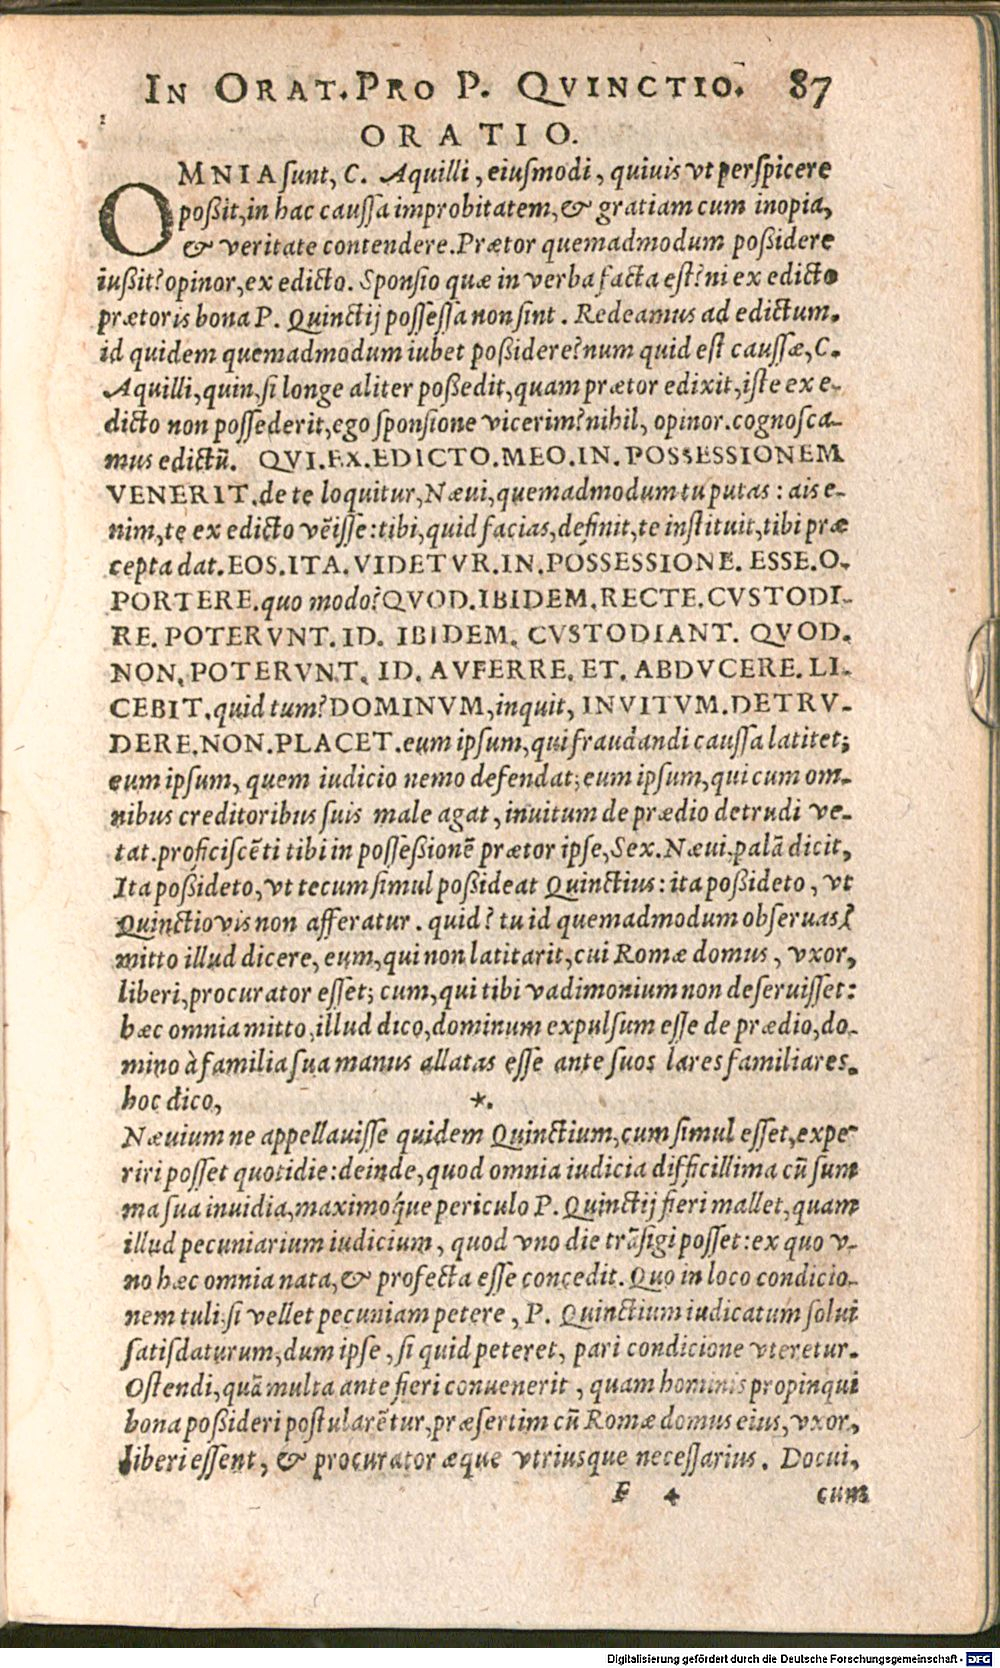 IN ORAT. PRO P. QVINCTIO. 87
ORATIO.
OMNIA sunt, C. Aquilli, eiusmodi, quiuis vt perspicere
poßit, in hac caussa improbitatem, & gratiam cum inopia,
& veritate contendere. Prætor quemadmodum poßidere
iußit? opinor, ex edicto. Sponsio quæ in verba facta est? ni ex edicto
prætoris bona P. Quinctij possessa non sint. Redeamus ad edictum.
id quidem quemadmodum iubet poßidere? num quid est caussæ, C.
Aquilli, quin, si longe aliter poßedit, quam prætor edixit, iste ex e-
dicto non possederit, ego sponsione vicerim? nihil, opinor. cognosca-
mus edictũ. QVI. EX. EDICTO. MEO. IN. POSSESSIONEM
VENERIT. de te loquitur, Næui, quemadmodum tu putas: ais e-
nim, te ex edicto vẽisse: tibi, quid facias, definit, te instituit, tibi præ
cepta dat. EOS. ITA. VIDETVR. IN. POSSESSIONE. ESSE. O-
PORTERE. quo modo? QVOD. IBIDEM. RECTE. CVSTODI-
RE. POTERVNT. ID. IBIDEM. CVSTODIANT. QVOD.
NON. POTERVNT. ID. AVFERRE. ET. ABDVCERE. LI-
CEBIT. quid tum? DOMINVM, inquit, INVITVM. DETRV-
DERE. NON. PLACET. eum ipsum, qui fraudandi caussa latitet;
eum ipsum, quem iudicio nemo defendat; eum ipsum, qui cum om-
nibus creditoribus suis male agat, inuitum de prædio detrudi ve-
tat. proficiscẽti tibi in posseßionẽ prætor ipse, Sex. Næui, palã dicit,
Ita poßideto, vt tecum simul poßideat Quinctius: ita poßideto, vt
Quinctio vis non afferatur. quid? tu id quemadmodum obseruas?
mitto illud dicere, eum, qui non latitarit, cui Romæ domus, vxor,
liberi, procurator esset; eum, qui tibi vadimonium non deseruisset:
hæc omnia mitto, illud dico, dominum expulsum esse de prædio, do-
mino à familia sua manus allatas esse ante suos lares familiares.
hoc dico, *.
Næuium ne appellauisse quidem Quinctium, cum simul esset, expe-
riri posset quotidie: deinde, quod omnia iudicia difficillima cũ sum
ma sua inuidia, maximóque periculo P. Quinctij fieri mallet, quam
illud pecuniarium iudicium, quod vno die trãsigi posset: ex quo v-
no hæc omnia nata, & profecta esse concedit. Quo in loco condicio-
nem tuli; si vellet pecuniam petere, P. Quinctium iudicatum solui
satisdaturum, dum ipse, si quid peteret, pari condicione vteretur.
Ostendi, quã multa ante fieri conuenerit, quam hominis propinqui
bona poßideri postularẽtur, præsertim cũ Romæ domus eius, vxor,
liberi essent, & procurator æque vtriusque necessarius. Docui,
F 4 cum
Digitalisierung gefördert durch die Deutsche Forschungsgemeinschaft - DFG